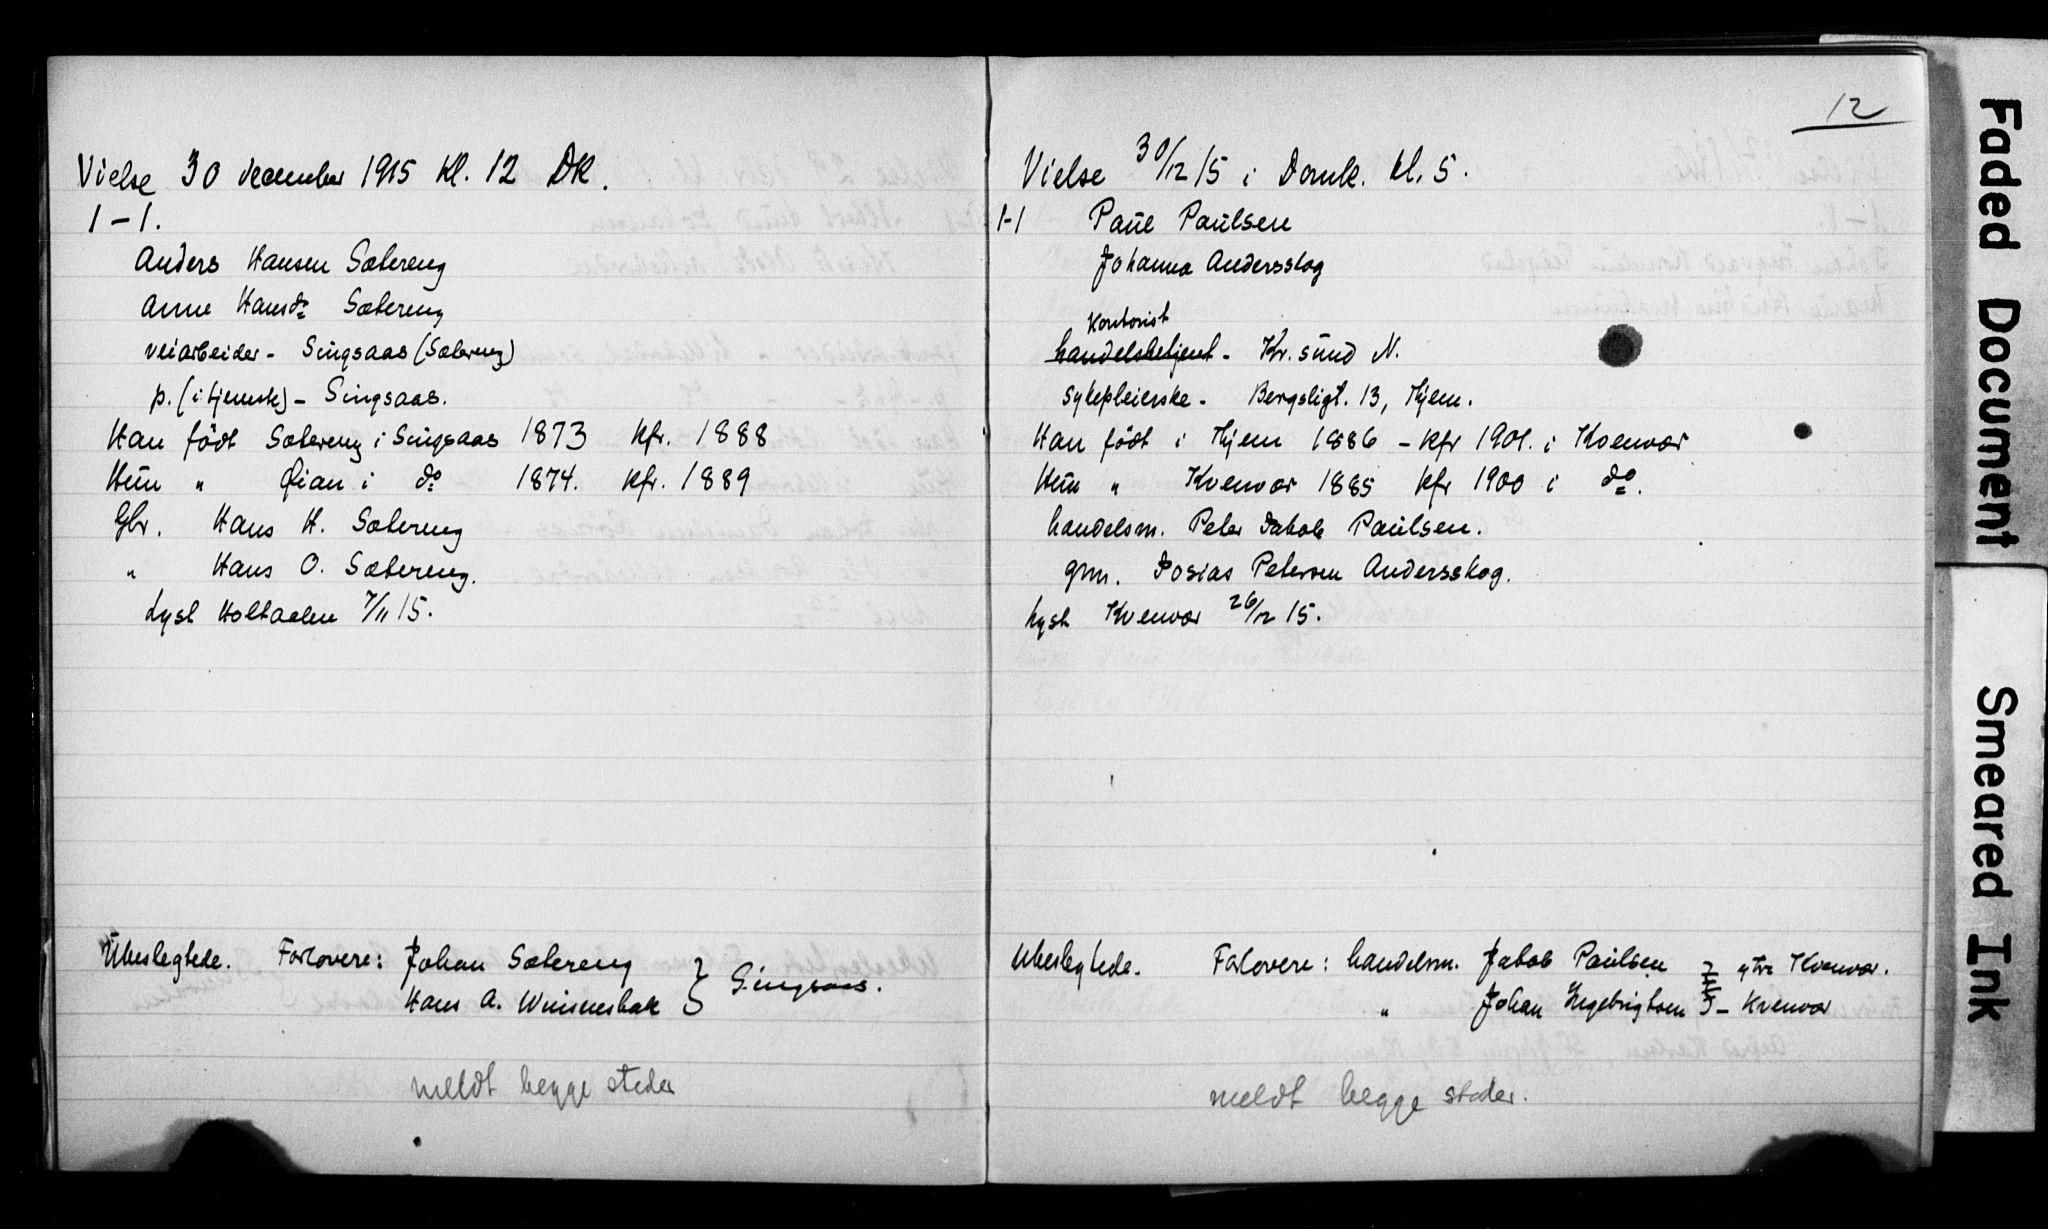 Vielse 30 december 1915 kl. 12 DK.
1-1.
Anders Hansen Sætereng
Anne Hansdr Sætereng
veiarbeider - Singsaas (Sætereng)
p. (i tjeneste) - Singsaas.
Han födt Sætereng i Singsaas 1873 kfr. 1888
Hun " Øian i do 1874. kfr. 1889
Gbr. Hans H. Sætereng
" Hans O. Sætereng.
Lyst Holtaalen 7/11 15.
Ubeslegtede. Forlovere: Johan Sætereng
Hans A. } Singsaas.
meldt begge steder
12
Vielse 30/12 15 i Domk. kl. 5.
1-1 Paul Paulsen
Johanna Andersskog
kontorist
handelsbetjent - Kr.sund N.
sykepleierske - Bergsligt. 13, Thjem.
Han födt i Thjem 1886 - kfr 1901. i Kvenvær
Hun " Kvenvær 1885 kfr 1900 i do.
handelsm. Peter Jakob Paulsen.
grm. Josias Petersen Andersskog.
Lyst Kvenvær 26/12 15.
Ubeslegtede. Forlovere: handelsm. Jakob Paulsen ytre Kvenvær.
" Johan Ingebrigtsen - Kvenvær
meldt begge steder.
Faded Document
Smeared Ink